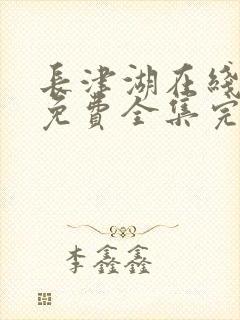 長津湖在綫
免費全集完
李鑫鑫